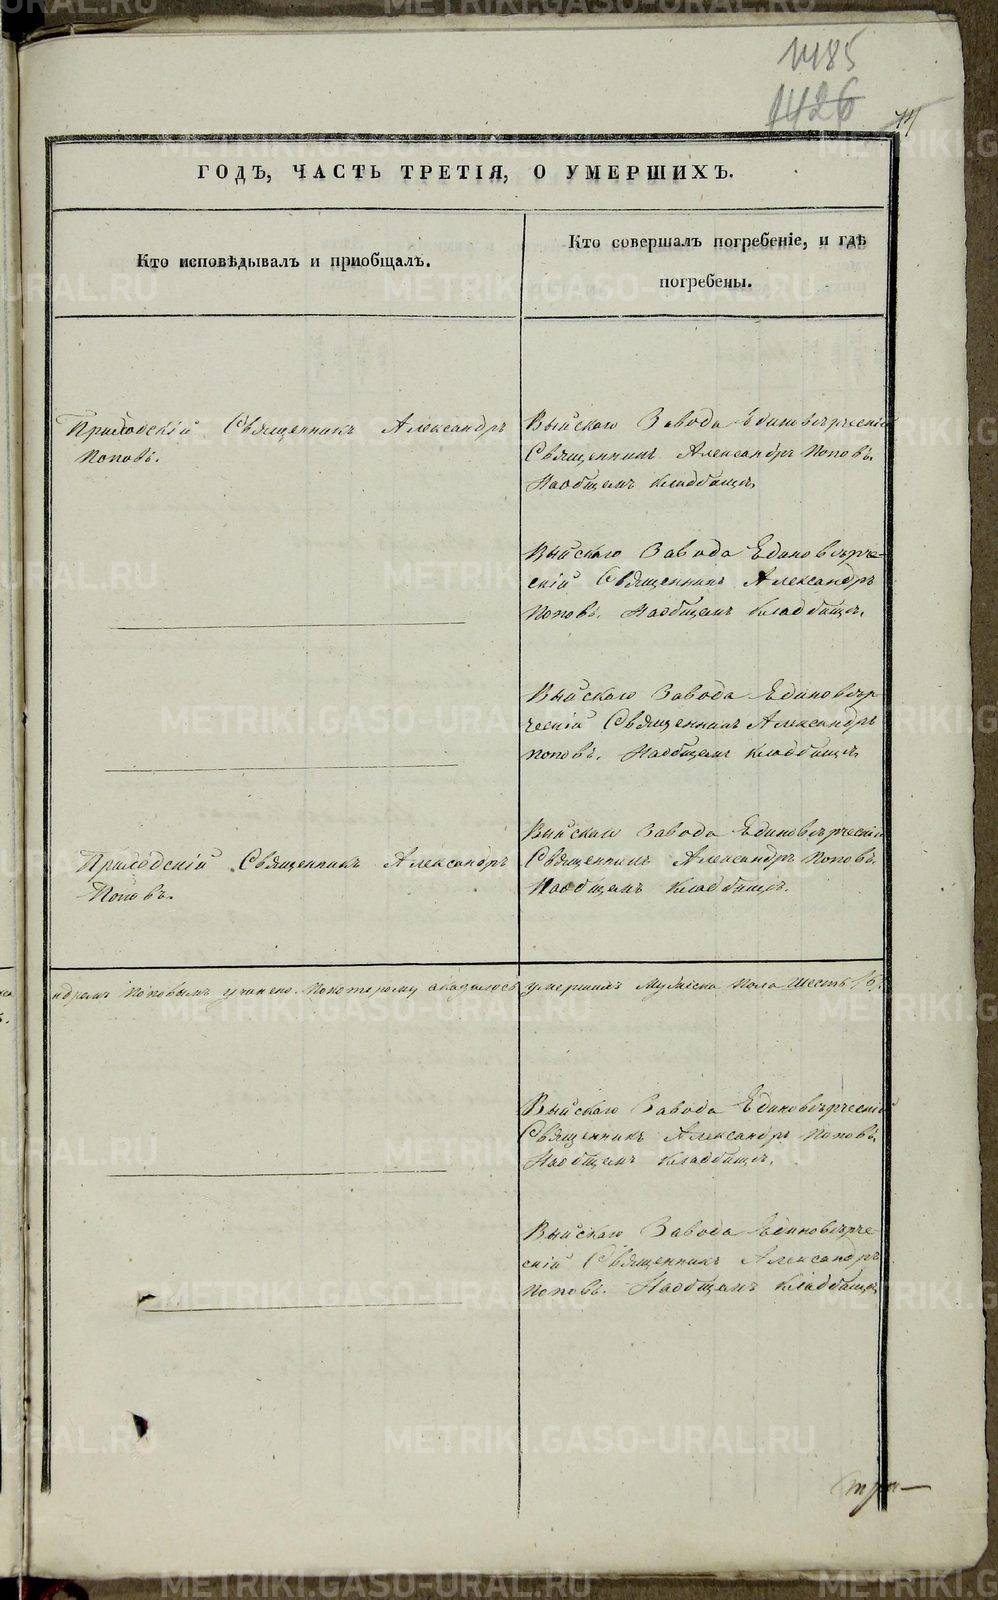 1485
1426
ГОДЪ, ЧАСТЬ ТРЕТІЯ, О УМЕРШИХЪ.
Кто исповѣдывалъ и пріобщалъ.
Кто совершалъ погребеніе, и гдѣ
погребены.
Приходскій Священникъ Александръ
Поповъ.
Выйскаго Завода Единовѣрческій
Священникъ Александръ Поповъ.
На общемъ кладбищѣ.
Выйскаго Завода Единовѣрче-
скій Священникъ Александръ
Поповъ. На общемъ кладбищѣ.
Выйскаго Завода Единовѣр-
ческій Священникъ Александръ
Поповъ. На общемъ кладбищѣ.
Приходскій Священникъ Александръ
Поповъ.
Выйскаго Завода Единовѣрческій
Священникъ Александръ Поповъ.
На общемъ кладбищѣ.
ндремъ Поповымъ учинено. По которому оказалось умершихъ мужеска пола шесть /6/.
Выйскаго Завода Единовѣрческій
Священникъ Александръ Поповъ.
На общемъ кладбищѣ.
Выйскаго Завода Единовѣрче-
скій Священникъ Александръ
Поповъ. На общемъ кладбищѣ.
METRIKI.GASO-URAL.RU